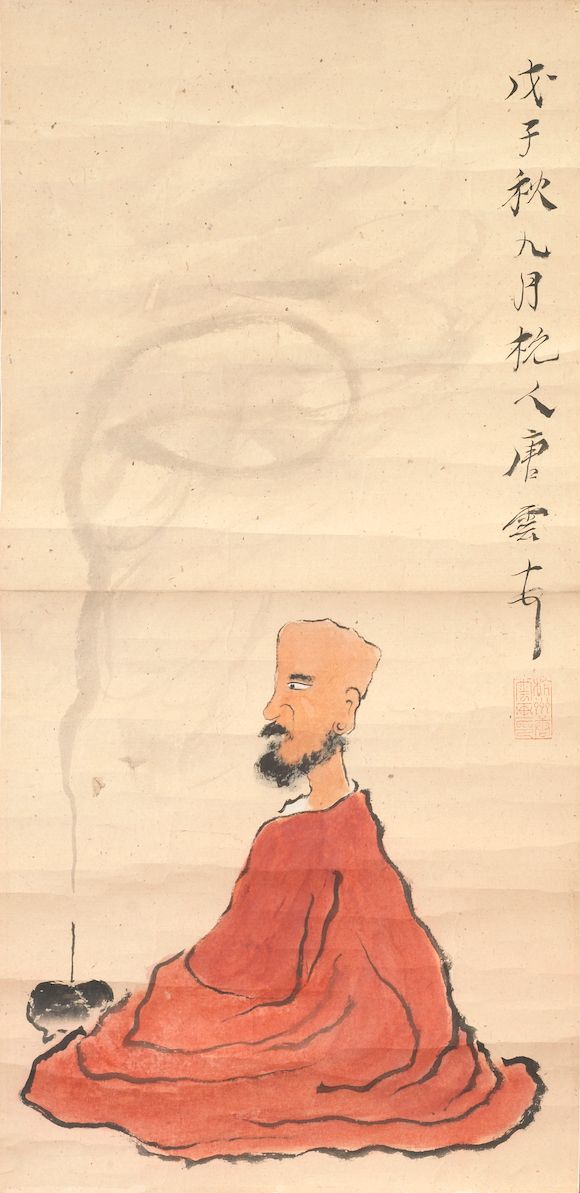 戊子秋九月杭人唐雲